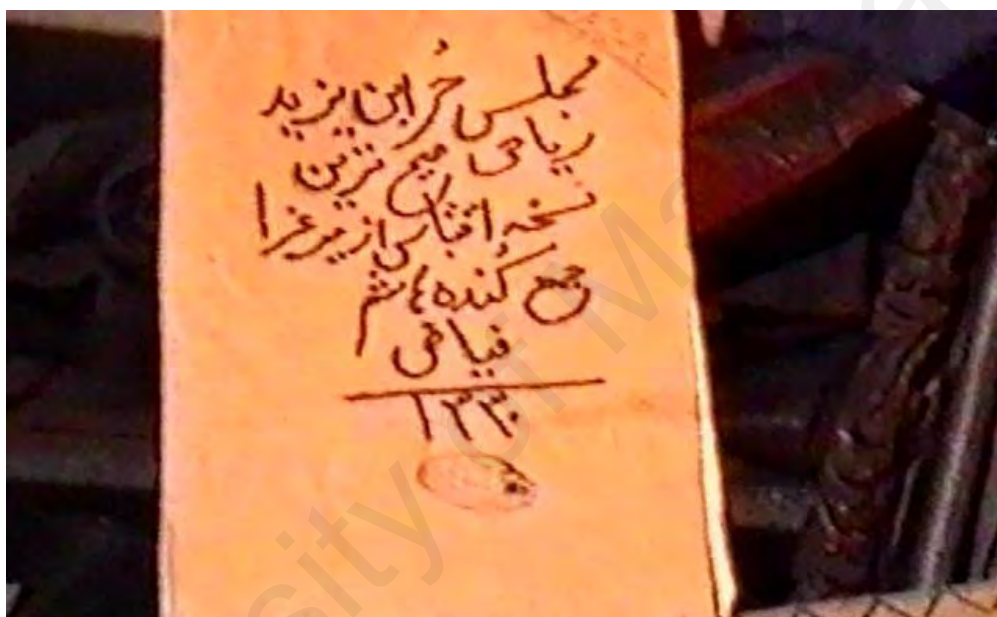 مجلس حُر ابن یزید
ریاحی مهم ترین
نسخه اقتباس از میرعزا
جمع کننده هاشم
فیاضی
۱۳۳۰